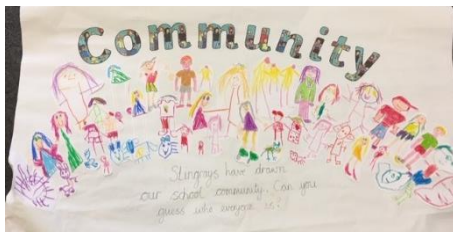 Community
Stingrays have drawn
our school community. Can you
guess who everyone is?